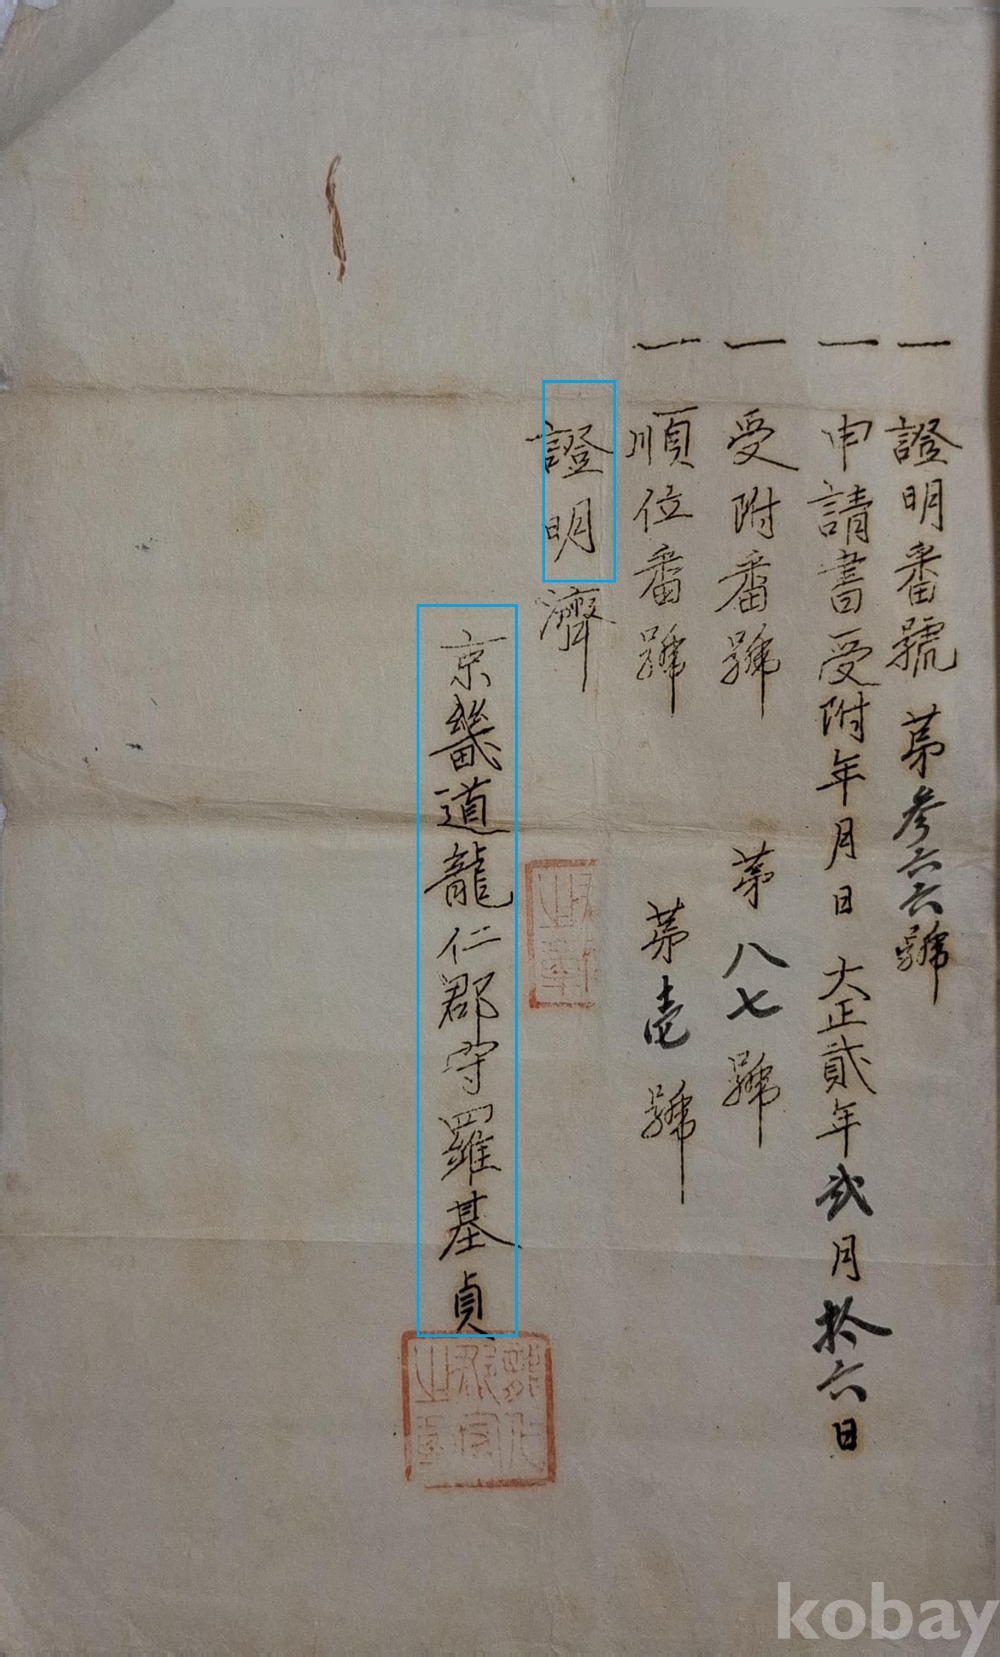 一 證明番號 苐參六六號
一 申請書受附年月日 大正貳年貳月拾六日
一 受附番號 苐八七號
一 順位番號 苐壱號
證明濟
京畿道龍仁郡守羅基貞
kobay